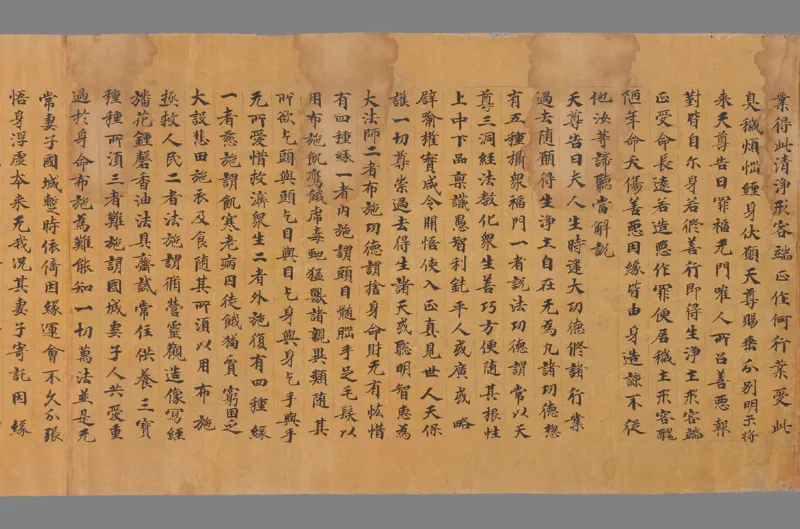 業得此清浄形容端正作何行業受此
臭穢煩惱經身伏願天尊賜垂分别明示將
来天尊告曰罪福无門唯人所召善惡報
對皆自尓身若修善行即得生浄土形容端
正受命長遠若造惡作罪便居穢土形容醜
陋年命夭傷善惡因緣皆由身造諒不從
他汝等諦聽當解說
天尊告曰夫人生時運大功德修諸行業
過去随願得生浄土自在无為凡諸功德惣
有五種攝衆福門一者說法功德謂常以天
尊三洞經法教化衆生善巧方便随其根性
上中下品稟識愚智利鈍平人或廣或略
辟喻摧實咸令開悟使入正真見世人天保
護一切尊崇過去得生諸天或聡明智恵為
大法師二者布施功德謂捨身命財无有恡惜
有四種緣一者内施謂頭目髓腦手足毛髮以
用布施飢鷹餓虎毒虵猛獸諸親異類随其
所欲乞頭與頭乞目與目乞身與身乞手與手
无所愛惜救濟衆生二者外施復有四種緣
一者慈施謂飢寒老病囚徒餓獄貧窮困乏
大設悲田施衣及食随其所須以用布施
拯救人民二者法施謂脩營靈觀造像寫經
旛花鍾磬香油法具齋試常住供養三寶
種種所須三者難施謂國城妻子人共愛重
過於身命布施為難能知一切萬法並是无
常妻子國城蹔時依倚因緣運會不久分張
悟身浮虛本来无我况其妻子寄託因緣